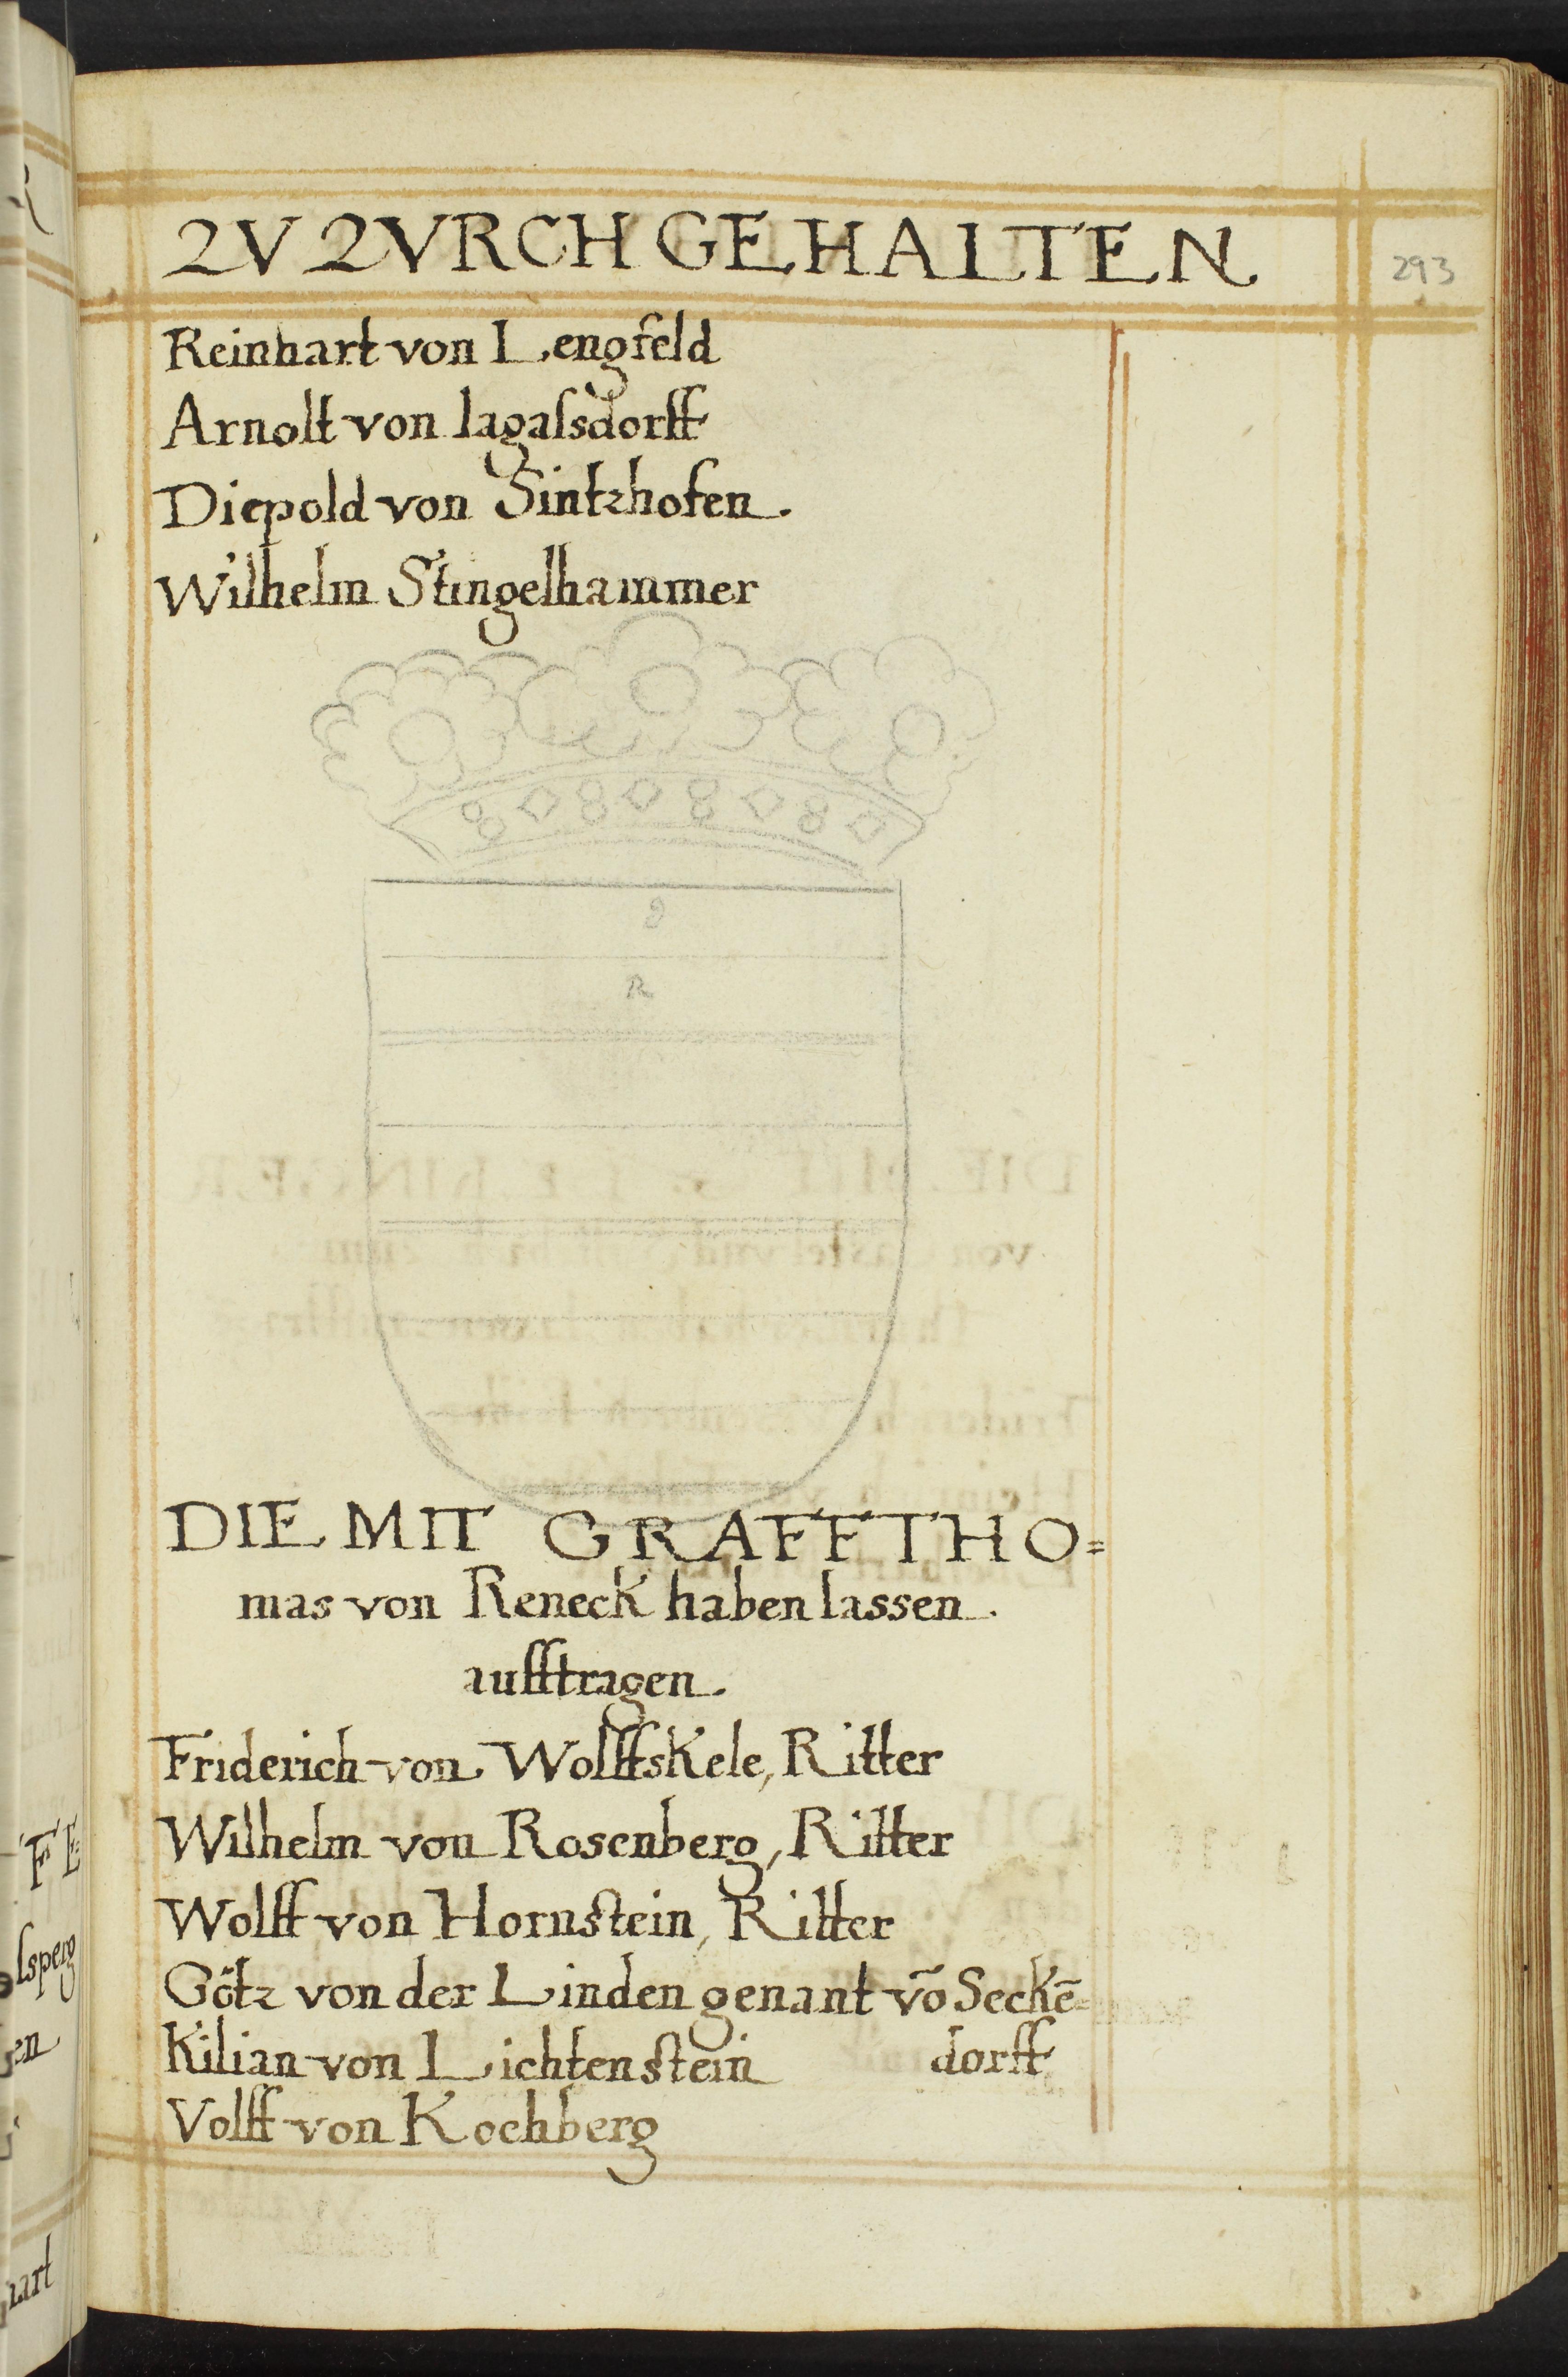 ZV ZVRCH GEHALTEN
293
Reinhart von Lengfeld
Arnolt von Iagalsdorff
Diepold von Sintzhofen.
Wilhelm Stingelhammer
g
R
DIE MIT GRAFF THO=
mas von Reneck haben lassen.
aufftragen.
Friderich von Wolffskele, Ritter
Wilhelm von Rosenberg, Ritter
Wolff von Hornstein, Ritter
Götz von der Linden genant võ Seckẽ=
Kilian von Lichtenstein dorff
Volff von Kochberg